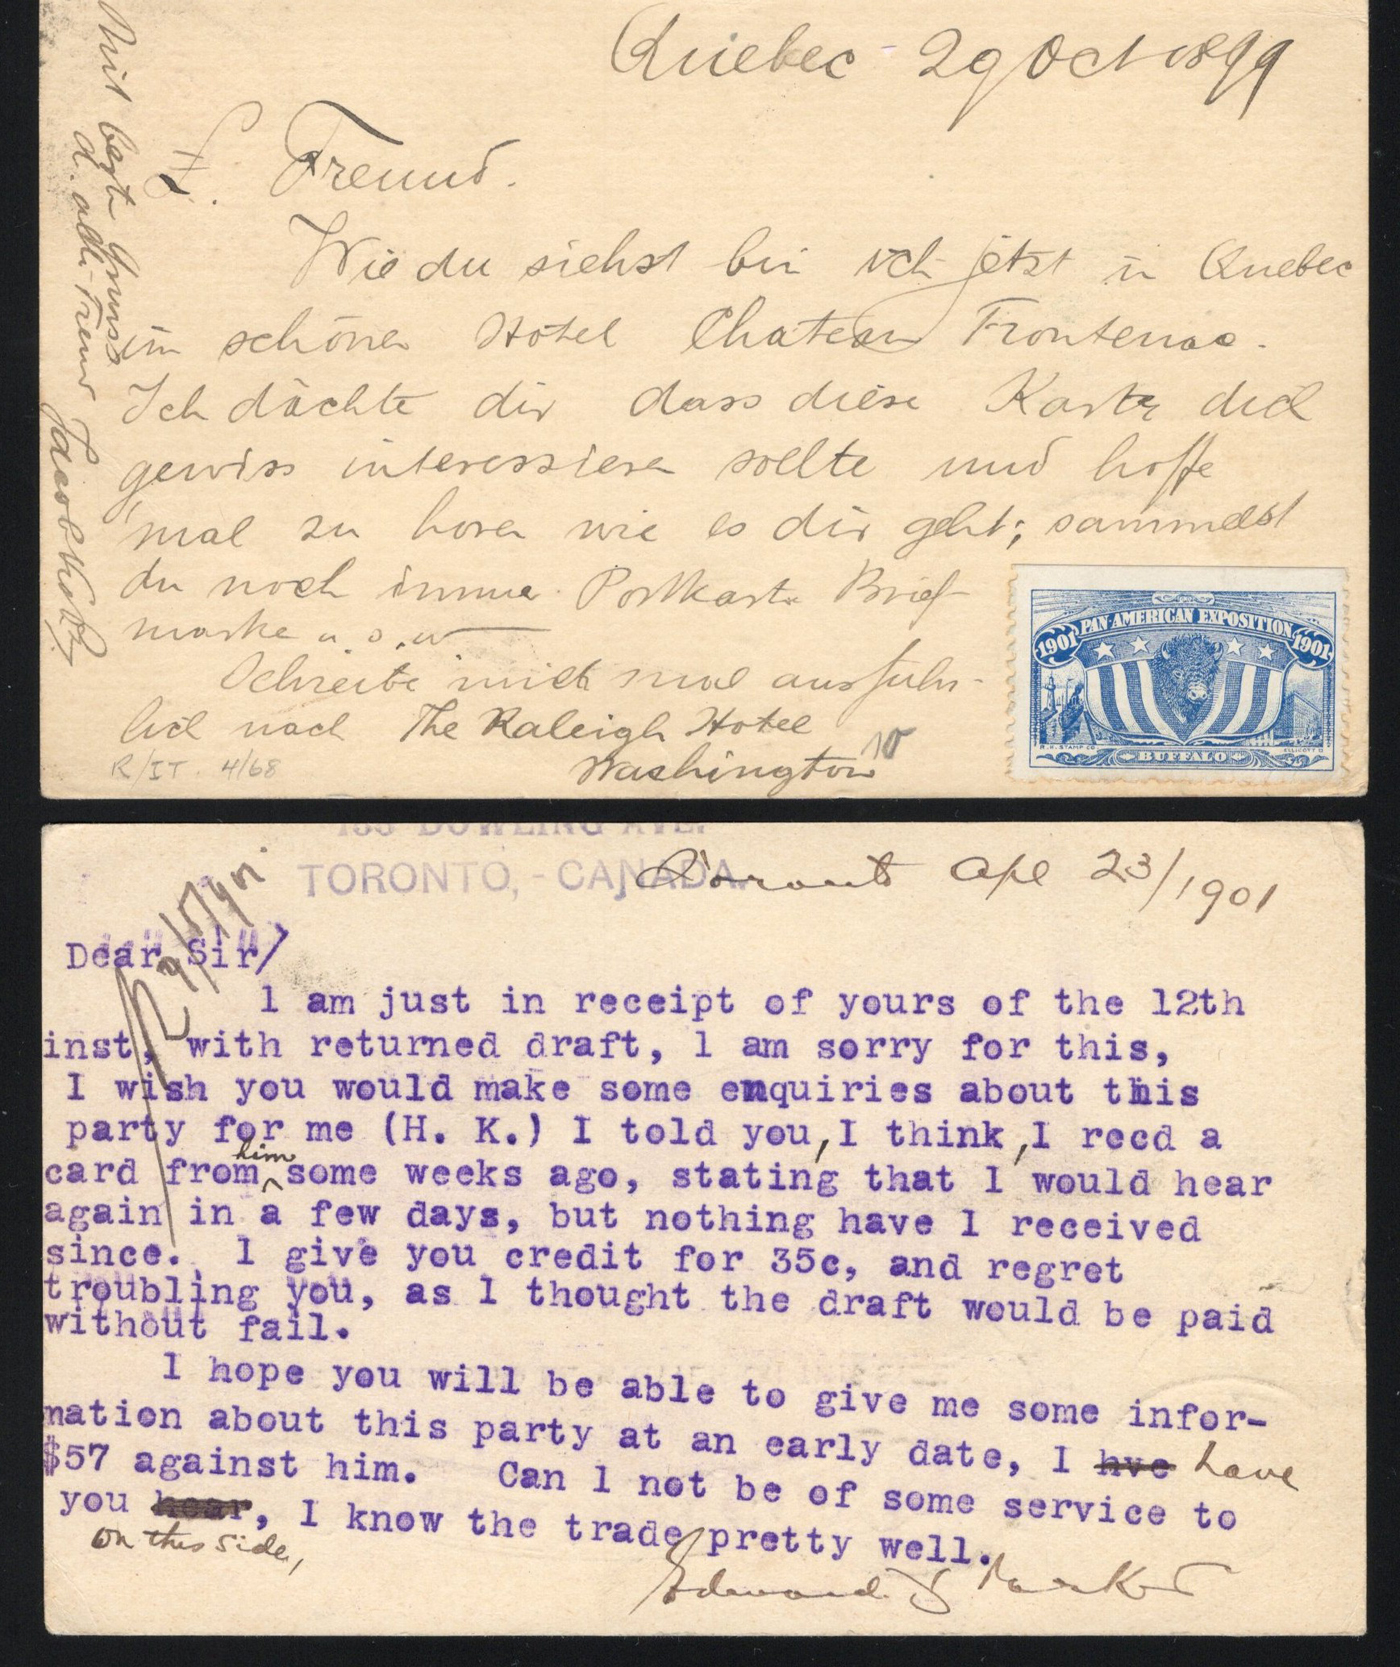 Quebec 29 Oct 1899
L. Freund.
Wie du siehst bin ich jetzt in Quebec
im schönen Hotel Chateau Frontenac.
Ich dachte dir dass diese Karte dich
gewiss interessieren sollte und hoffe
mal zu horen wie es dir geht; sammelst
du noch immer Postkarte Brief-
marke u. s. w
Schreibe mich mal ausfuhr-
lich nach The Raleigh Hotel
Washington
10
R/IT. 4/68
Mit best Gruss
d. alt. Freund Jacob
1901 PAN AMERICAN EXPOSITION 1901
BUFFALO
153 DOWLING AVE.
TORONTO, - CANADA.
Toronto Apl 23/1901
Dear Sir/
1 am just in receipt of yours of the 12th
inst, with returned draft, 1 am sorry for this,
I wish you would make some enquiries about this
party for me (H. K.) I told you, I think, I recd a
card from him some weeks ago, stating that 1 would hear
again in a few days, but nothing have 1 received
since. 1 give you credit for 35c, and regret
troubling you, as 1 thought the draft would be paid
without fail.
I hope you will be able to give me some infor-
mation about this party at an early date, I hve have
$57 against him. Can 1 not be of some service to
you hear, I know the trade pretty well.
on this side,
Edward Y Parker